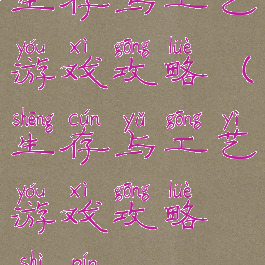 生存与工艺
yóu xì gōng lüè
游戏攻略（
shēng cún yǔ gōng yì
生存与工艺
yóu xì gōng lüè
游戏攻略
shì pín